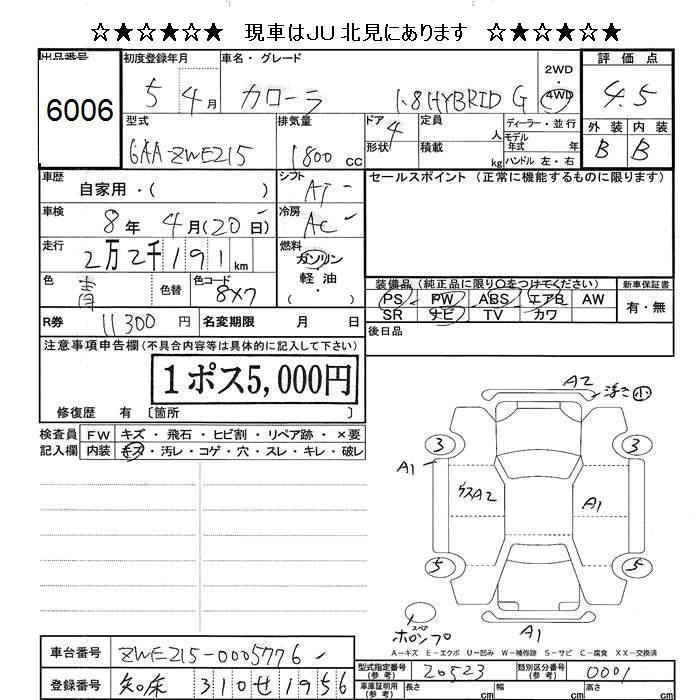 ☆★☆★☆★　現車はJU北見にあります　☆★☆★☆★
出品番号 初度登録年月 車名・グレード 2WD・4WD 評価点
6006 5 4月 カローラ 1.8 HYBRID G 4.5
型式 排気量 ドア 4 形状 定員 人 積載 kg ディーラー・並行 モデル年式 年式 ハンドル 左・右 外装 内装
6AA-ZWE215 1800 cc B B
車歴 自家用・( ) シフト AT セールスポイント (正常に機能するものに限ります)
車検 8年 4月(20日) 冷房 AC
走行 2万2千191km 燃料 ガソリン・軽油・( )
色 青 色替 色コード 8X7 装備品(純正品に限り〇をつけてください) 新車保証書
PS PW ABS エアB AW 有・無
SR ナビ TV カワ
R券 11300円 名変期限 月 日 後日品
注意事項申告欄(不具合内容等は具体的に記入して下さい)
1ポス5,000円
修復歴 有 〔箇所 〕
検査員 FW キズ・飛石・ヒビ割・リペア跡・×要
記入欄 内装 キズ・汚レ・コゲ・穴・スレ・キレ・破レ
A2 浮き小
3 3
A1
A2 A1
5 5
スペア
ホロンプ A1
A-キズ E-エクボ U-凹み W-補修跡 S-サビ C-腐食 XX-交換済
車台番号 ZWE215-0005776 型式指定番号(参考) 20523 類別区分番号(参考) 0001
登録番号 知床 310 せ 1956 車庫証明用(参考) 長さ cm 幅 cm 高さ cm